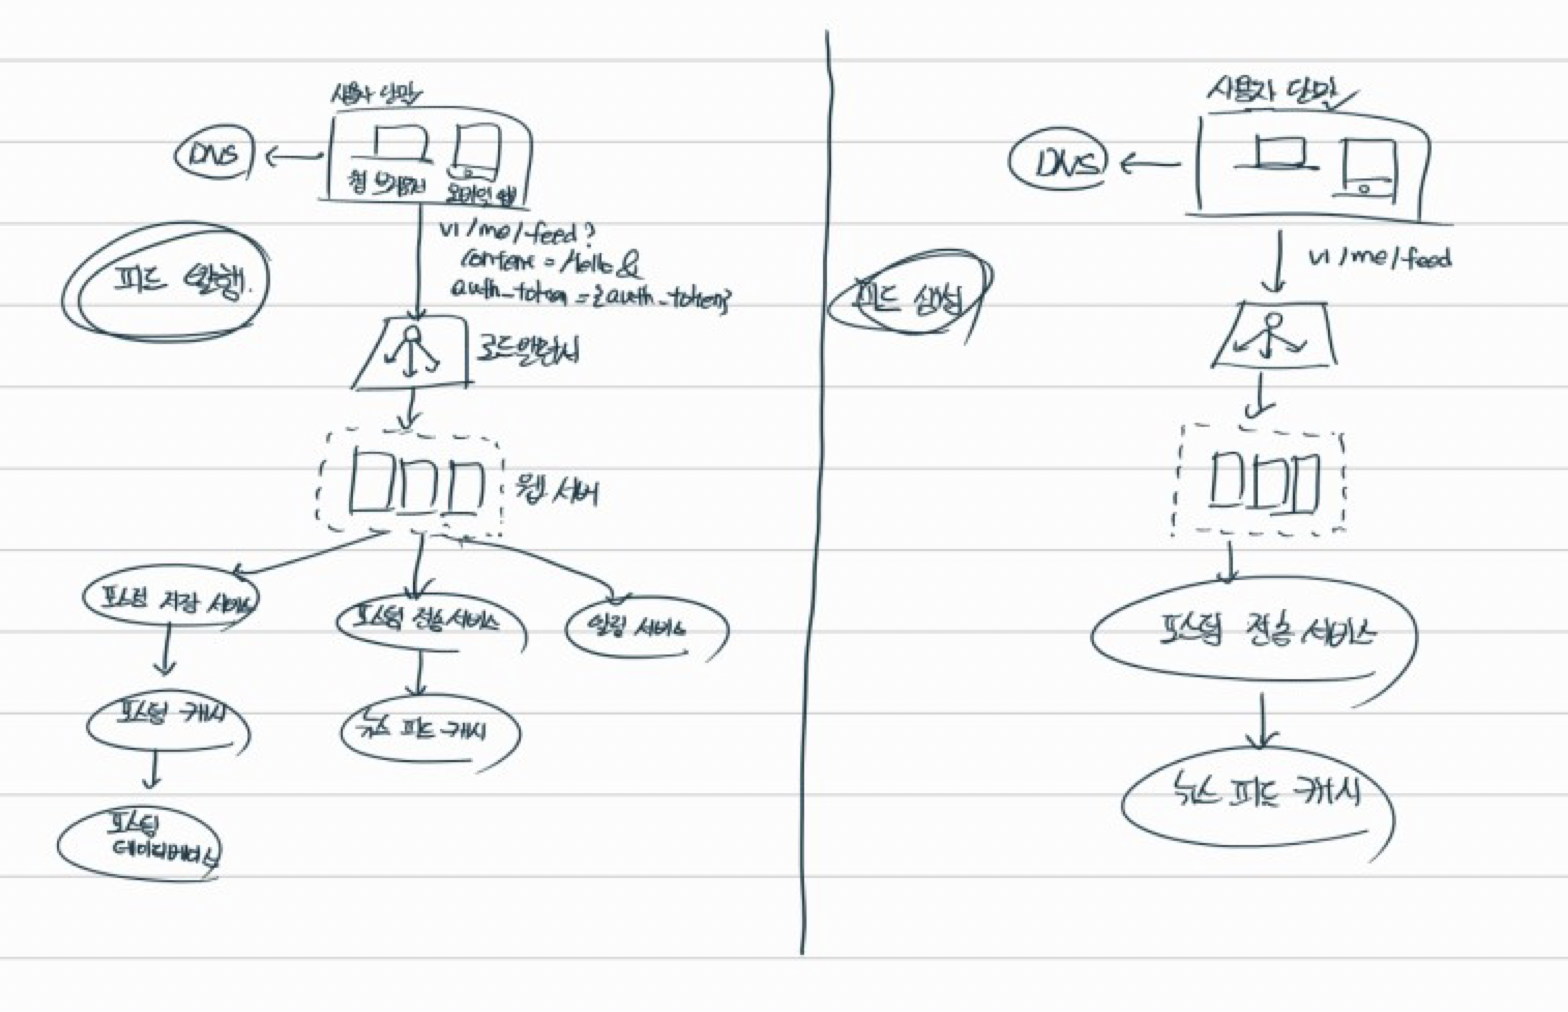 사용자 단말
DNS
웹 브라우저
모바일 앱
v1/me/feed?
content=Hello &
auth_token={auth_token}
피드 발행.
로드밸런서
웹 서버
포스팅 저장 서비스
포스팅 전송 서비스
알림 서비스
포스팅 캐시
뉴스 피드 캐시
포스팅
데이터베이스
사용자 단말
DNS
v1/me/feed
피드 생성
포스팅 전송 서비스
뉴스 피드 캐시